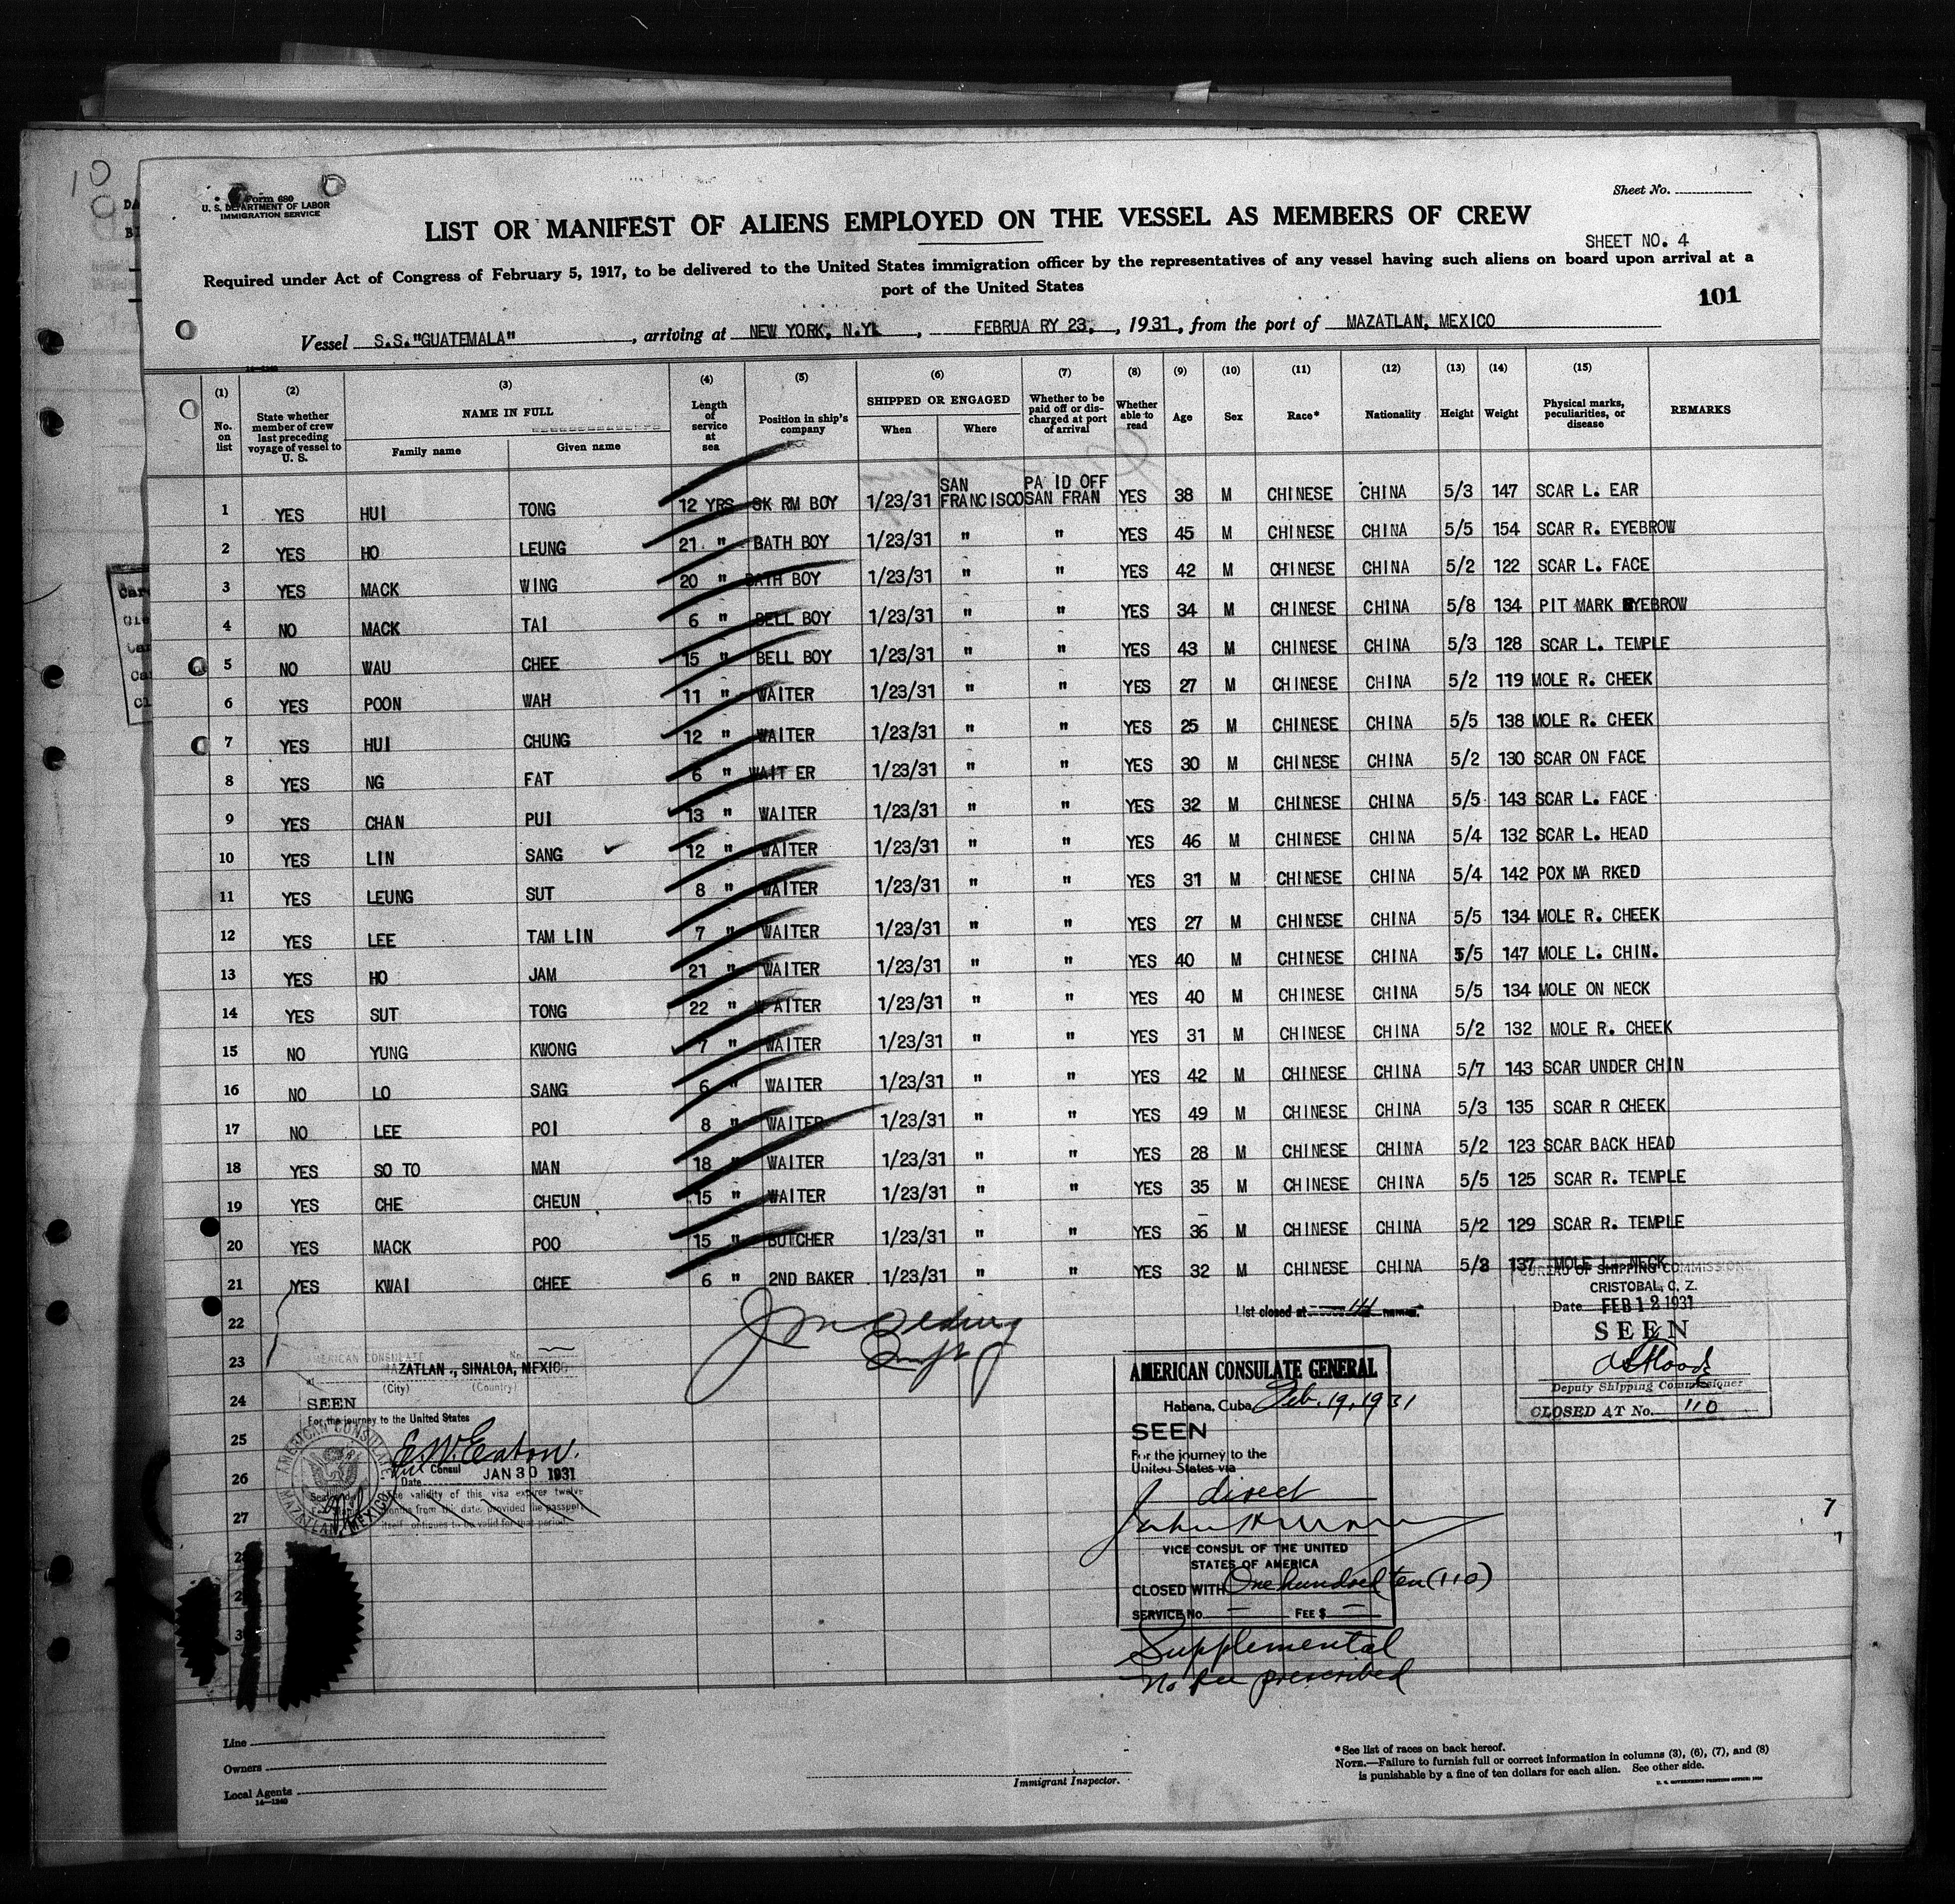 10
Form 680
U. S. DEPARTMENT OF LABOR
IMMIGRATION SERVICE
Sheet No.
LIST OR MANIFEST OF ALIENS EMPLOYED ON THE VESSEL AS MEMBERS OF CREW
SHEET NO. 4
Required under Act of Congress of February 5, 1917, to be delivered to the United States immigration officer by the representatives of any vessel having such aliens on board upon arrival at a
port of the United States
101
Vessel S.S."GUATEMALA", arriving at NEW YORK, N.Y., FEBRUA RY 23, , 1931, from the port of MAZATLAN, MEXICO
14—1240
(1) (2) (3) (4) (5) (6) (7) (8) (9) (10) (11) (12) (13) (14) (15)
No. on list
State whether member of crew last preceding voyage of vessel to U. S.
NAME IN FULL
Family name
Given name
Length of service at sea
Position in ship's company
SHIPPED OR ENGAGED
When
Where
Whether to be paid off or discharged at port of arrival
Whether able to read
Age
Sex
Race*
Nationality
Height
Weight
Physical marks, peculiarities, or disease
REMARKS
1 YES HUI TONG 12 YRS SK RM BOY 1/23/31 SAN FRANCISCO PA ID OFF SAN FRAN YES 38 M CHINESE CHINA 5/3 147 SCAR L. EAR
2 YES HO LEUNG 21 " BATH BOY 1/23/31 " " YES 45 M CHINESE CHINA 5/5 154 SCAR R. EYEBROW
3 YES MACK WING 20 " BATH BOY 1/23/31 " " YES 42 M CHINESE CHINA 5/2 122 SCAR L. FACE
4 NO MACK TAI 6 " BELL BOY 1/23/31 " " YES 34 M CHINESE CHINA 5/8 134 PIT MARK EYEBROW
5 NO WAU CHEE 15 " BELL BOY 1/23/31 " " YES 43 M CHINESE CHINA 5/3 128 SCAR L. TEMPLE
6 YES POON WAH 11 " WAITER 1/23/31 " " YES 27 M CHINESE CHINA 5/2 119 MOLE R. CHEEK
7 YES HUI CHUNG 12 " WAITER 1/23/31 " " YES 25 M CHINESE CHINA 5/5 138 MOLE R. CHEEK
8 YES NG FAT 6 " WAIT ER 1/23/31 " " YES 30 M CHINESE CHINA 5/2 130 SCAR ON FACE
9 YES CHAN PUI 13 " WAITER 1/23/31 " " YES 32 M CHINESE CHINA 5/5 143 SCAR L. FACE
10 YES LIN SANG 12 " WAITER 1/23/31 " " YES 46 M CHINESE CHINA 5/4 132 SCAR L. HEAD
11 YES LEUNG SUT 8 " WAITER 1/23/31 " " YES 31 M CHINESE CHINA 5/4 142 POX MA RKED
12 YES LEE TAM LIN 7 " WAITER 1/23/31 " " YES 27 M CHINESE CHINA 5/5 134 MOLE R. CHEEK
13 YES HO JAM 21 " WAITER 1/23/31 " " YES 40 M CHINESE CHINA 5/5 147 MOLE L. CHIN.
14 YES SUT TONG 22 " WAITER 1/23/31 " " YES 40 M CHINESE CHINA 5/5 134 MOLE ON NECK
15 NO YUNG KWONG 7 " WAITER 1/23/31 " " YES 31 M CHINESE CHINA 5/2 132 MOLE R. CHEEK
16 NO LO SANG 6 " WAITER 1/23/31 " " YES 42 M CHINESE CHINA 5/7 143 SCAR UNDER CHIN
17 NO LEE POI 8 " WAITER 1/23/31 " " YES 49 M CHINESE CHINA 5/3 135 SCAR R CHEEK
18 YES SO TO MAN 18 " WAITER 1/23/31 " " YES 28 M CHINESE CHINA 5/2 123 SCAR BACK HEAD
19 YES CHE CHEUN 15 " WAITER 1/23/31 " " YES 35 M CHINESE CHINA 5/5 125 SCAR R. TEMPLE
20 YES MACK POO 15 " BUTCHER 1/23/31 " " YES 36 M CHINESE CHINA 5/2 129 SCAR R. TEMPLE
21 YES KWAI CHEE 6 " 2ND BAKER 1/23/31 " " YES 32 M CHINESE CHINA 5/8 137 MOLE L. NECK
22
23
24
25
26
27
List closed at names.
BUREAU OF SHIPPING COMMISSIONER
CRISTOBAL, C. Z.
Date FEB 12 1931
SEEN
Deputy Shipping Commissioner
CLOSED AT No. 110
AMERICAN CONSULATE No.
at MAZATLAN., SINALOA, MEXICO
(City) (Country)
SEEN
For the journey to the United States
E. W. Eaton
Consul
Date JAN 30 1931
The validity of this visa expires twelve
months from this date, provided the passport
itself continues to be valid for that period.
AMERICAN CONSULATE
MAZATLAN, MEXICO
AMERICAN CONSULATE GENERAL
Habana, Cuba, Feb. 19, 1931
SEEN
For the journey to the
United States via
direct
VICE CONSUL OF THE UNITED
STATES OF AMERICA
CLOSED WITH One hundred ten (110)
SERVICE No. — FEE $ —
Supplemental
No fee prescribed
Line
Owners
Local Agents
14—1240
Immigrant Inspector.
*See list of races on back hereof.
NOTE.—Failure to furnish full or correct information in columns (3), (6), (7), and (8)
is punishable by a fine of ten dollars for each alien. See other side.